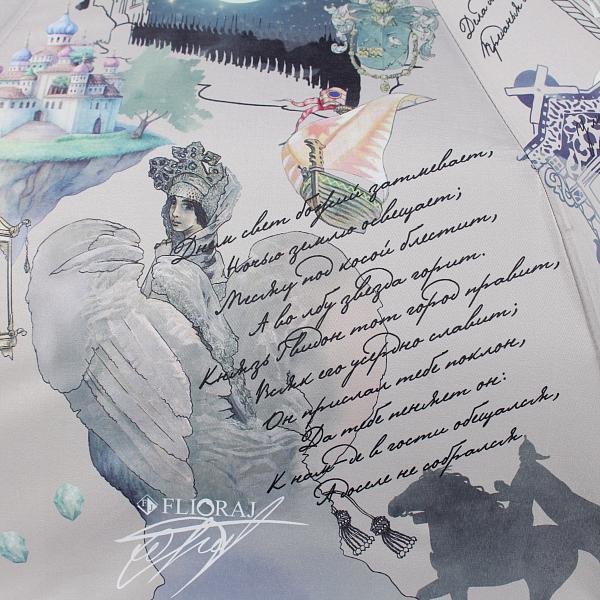 Дела
Привезли
Днем свет божий затмевает,
Ночью землю освещает;
Месяц под косой блестит,
А во лбу звезда горит.
Князь Гвидон тот город правит,
Всяк его усердно славит;
Он прислал тебе поклон,
Да тебе пеняет он:
К нам-де в гости обещался,
А доселе не собрался
FLIORAJ